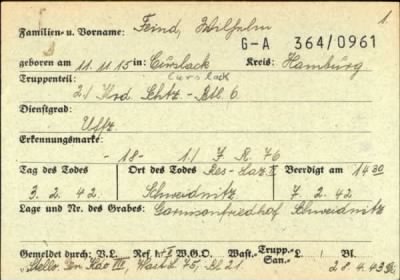 1
Familien- u. Vorname: Feind, Wilhelm
G-A 364/0961
geboren am 11.11.15 in: Curslack Kreis: Hamburg
Curslack
Truppenteil:
2./ Krd. Schtz.-Btl. 6
Dienstgrad:
Uffz
Erkennungsmarke:
-18- 1./ J. R. 76
Tag des Todes Ort des Todes Res-Laz. II Beerdigt am 14 30
3.2.42 Schweidnitz 7.2.42
Lage und Nr. des Grabes: Garnisonfriedhof Schweidnitz
Gemeldet durch: V.L. Ref. W.G.O. Wast.- Trupp.- San.- L. Bl.
III, 75, Bl 21 28.4.43